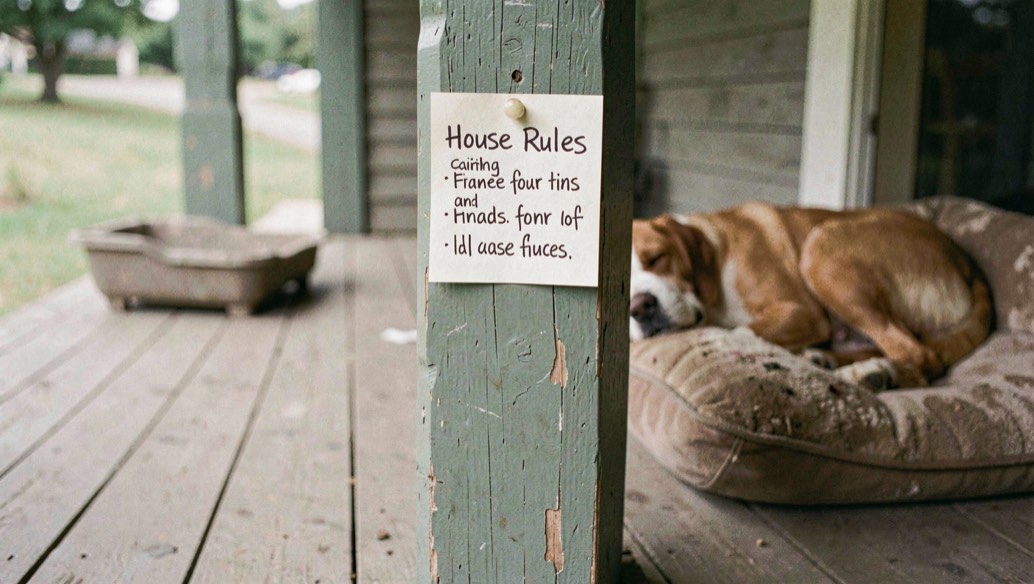 House Rules
Cairing
· Franee four tins
and
· Hnads. fonr lof
· Idl aase fuces.